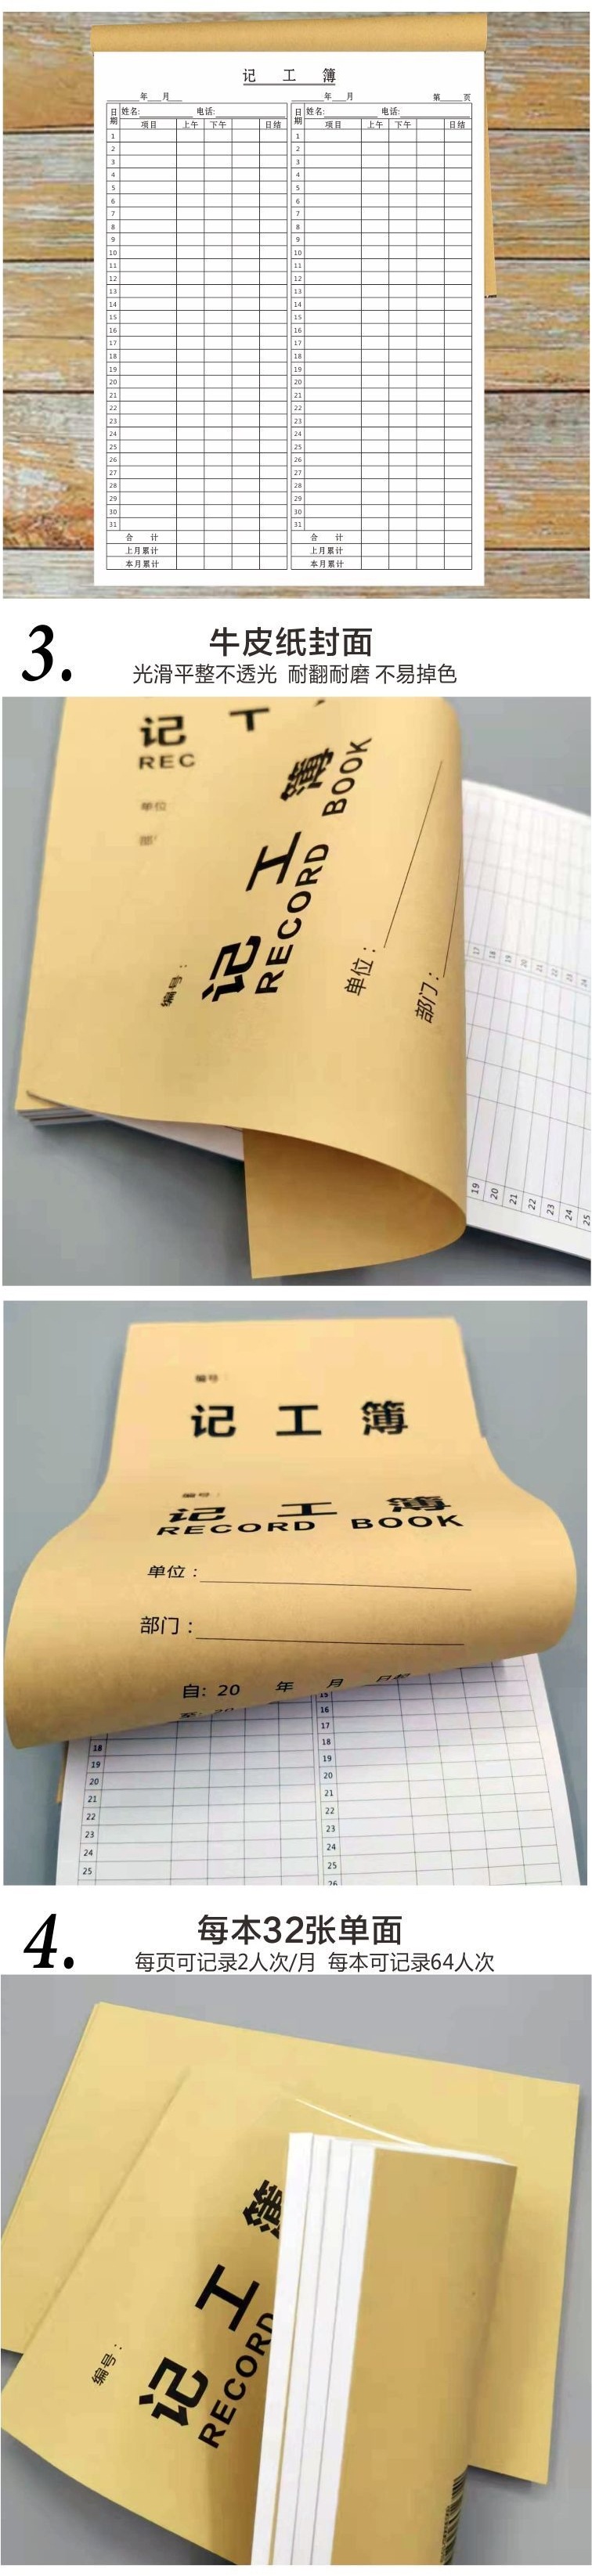 记 工 簿
年 月
年 月 第 页
日期 姓名: 电话:
日期 姓名: 电话:
项目 上午 下午 日结
项目 上午 下午 日结
1 1
2 2
3 3
4 4
5 5
6 6
7 7
8 8
9 9
10 10
11 11
12 12
13 13
14 14
15 15
16 16
17 17
18 18
19 19
20 20
21 21
22 22
23 23
24 24
25 25
26 26
27 27
28 28
29 29
30 30
31 31
合 计 合 计
上月累计 上月累计
本月累计 本月累计
3.
牛皮纸封面
光滑平整不透光 耐翻耐磨 不易掉色
记
REC
单位
编号：
记 工 簿
RECORD BOOK
单位：
部门：
17
18
19
20
21
22
23
24
19
20
21
22
23
24
25
编号：
记 工 簿
编号：
记 工 簿
RECORD BOOK
单位：
部门：
自: 20 年 月 日起
至: 20
15
16
17
18 18
19 19
20 20
21 21
22 22
23 23
24 24
25 25
26
4.
每本32张单面
每页可记录2人次/月 每本可记录64人次
编号：
记 工 簿
RECORD